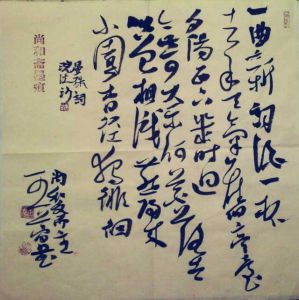 一曲新詞酒一杯
去年天氣舊亭臺
夕陽西下幾時迴
無可奈何花落去
似曾相識燕歸來
小園香徑獨徘徊
晏殊詞
浣溪沙
尚和齋主
尚和齋墨痕